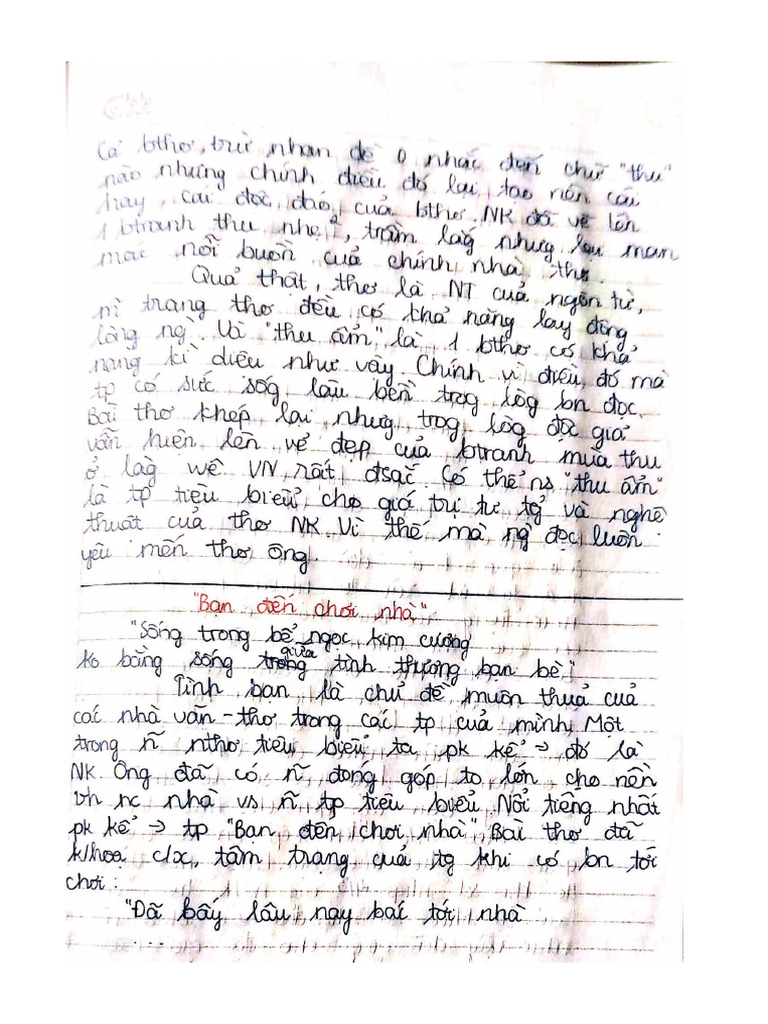 Cả bthơ, trừ nhan đề 0 nhắc đến chữ "thu"
nào nhưng chính điều đó lại tạo nên cái
hay, cái độc đáo của bthơ. NK đã vẽ lên
1 btranh thu nhẹ, trầm lắg nhưg lại man
mác nỗi buồn của chính nhà thơ.
Quả thật, thơ là NT của ngôn từ,
trang thơ đều có khả năng lay động
lòng ng. Và "thu ẩm" là 1 bthơ có khả
năng kì diệu như vậy. Chính vì điều đó mà
tp có sức sốg lâu bền trog lòg bn đọc.
Bài thơ khép lại nhưg trog lòg độc giả
vẫn hiện lên vẻ đẹp của btranh mùa thu
ở làg wê VN rất đsắc. Có thể ns "thu ẩm"
là tp tiêu biểu cho giá trị tư tg và nghệ
thuật của thơ NK. Vì thế mà ng đọc luôn
yêu mến thơ ông.
"Bạn đến chơi nhà"
"Sống trong bể ngọc kim cương
ko bằng sống giữa tình thương bạn bè"
Tình bạn là chủ đề muôn thuả của
các nhà văn - thơ trong các tp của mình. Một
trong ñ nthơ tiêu biểu ta pk kể → đó là
NK. Ông đã có ñ đóng góp to lớn cho nền
vh nc nhà vs ñ tp tiêu biểu. Nổi tiếng nhất
pk kể → tp "Bạn đến chơi nhà". Bài thơ đã
k/hoạ c/x, tâm trạng của tg khi có bn tới
chơi:
"Đã bấy lâu nay bác tới nhà